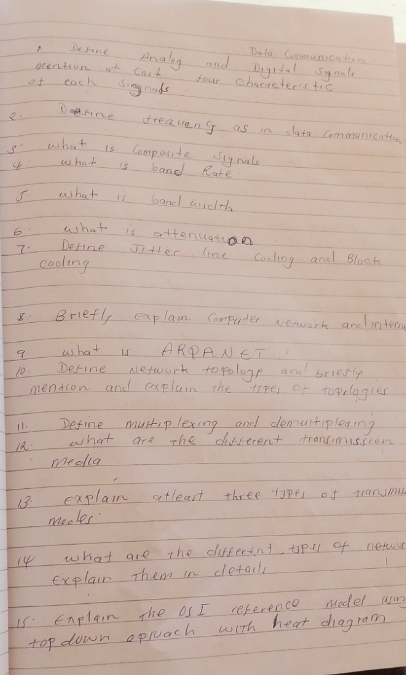 Data Communication
1 Define Analog and Digital Signals
mention at least four characteristic
of each signals.
2. Define frequency as in data communication
3. what is composite signals
4. what is band Rate
5 what is band width
6. what is attenuation
7. Define Jitter line Coding and Block
cooding
8. Briefly explain Computer network and
9 what is ARPANET.
10. Define network topology and briefly
mention and explain the types of topologies
11. Define multiplexing and demultiplexing
12. what are the different transmission
media
13 explain atleast three types of
modes.
14 what are the different types of
explain them in details
15. Explain the OSI reference model using
top down aproach with neat diagram